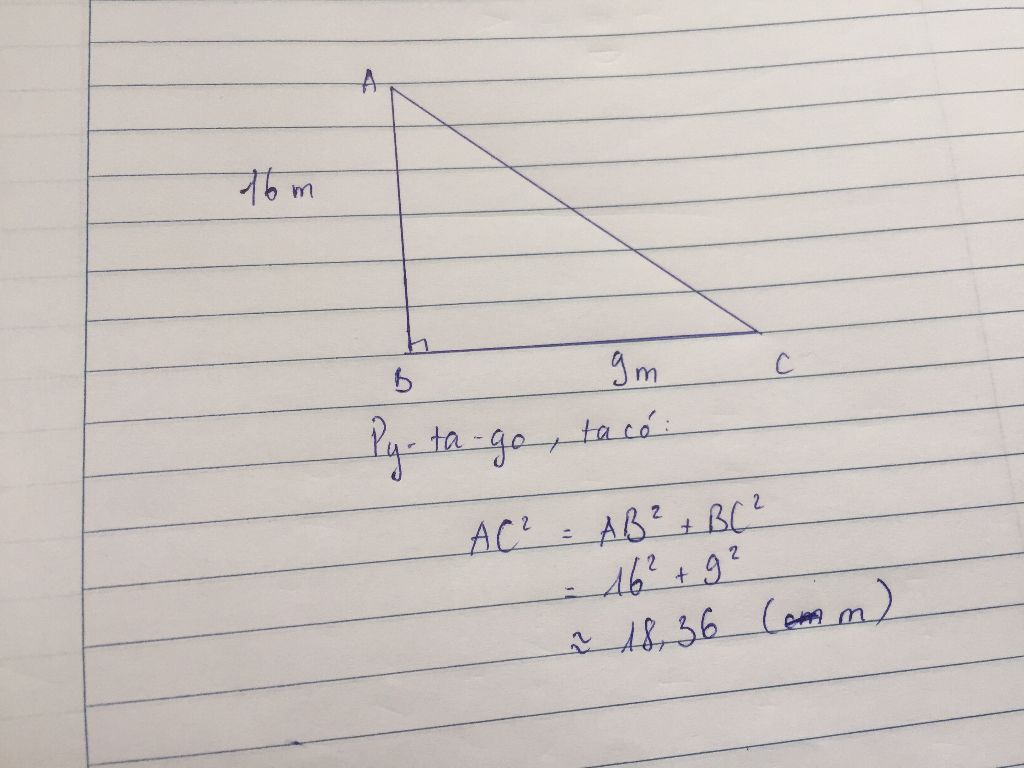 A
16 m
B
9m
C
Py-ta-go, ta có:
AC² = AB² + BC²
= 16² + 9²
≈ 18,36 (m)